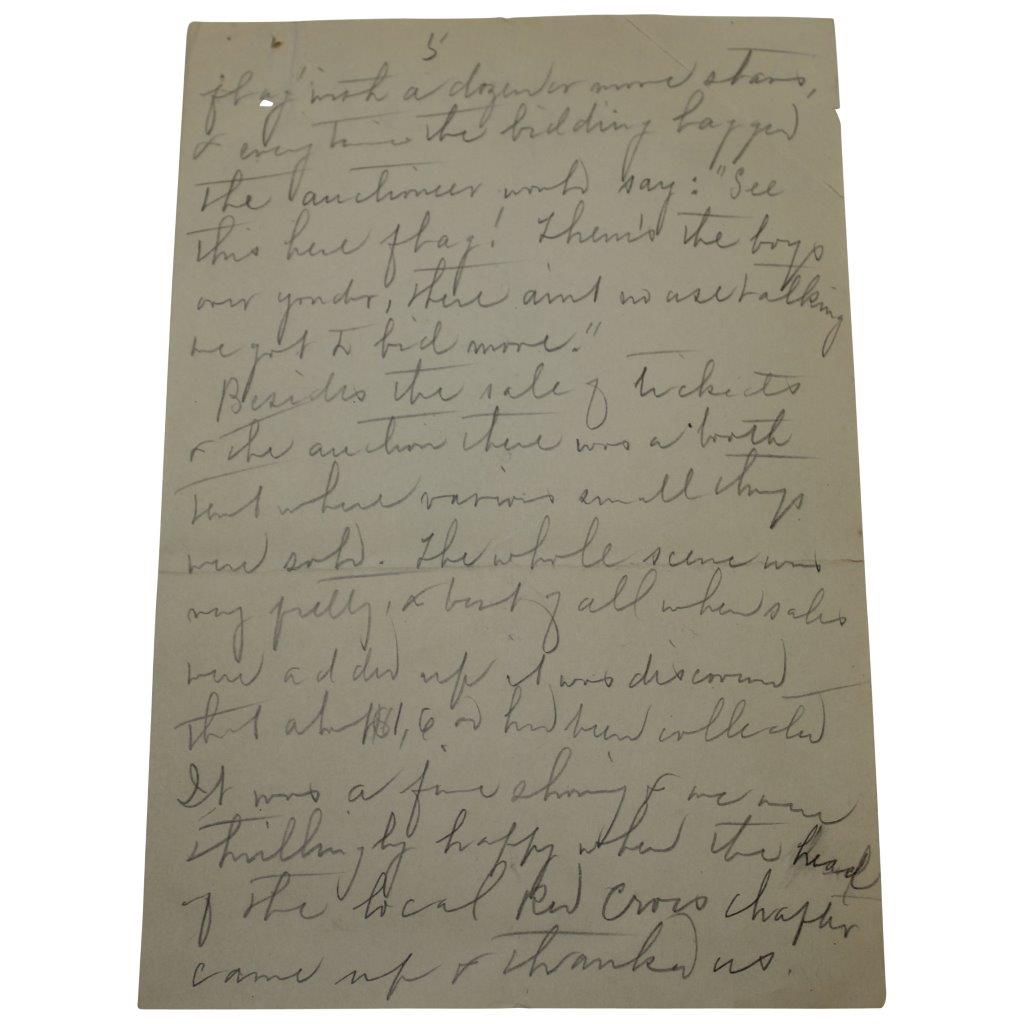 5
flag with a dozen or more stars,
& every time the bidding lagged
the auctioneer would say: "See
this here flag! Them's the boys
over yonder, there aint no use talking
we got to bid more."
Besides the sale of tickets
& the auction there was a booth
tent where various small things
were sold. The whole scene was
very pretty, & best of all when sales
were added up it was discovered
that about $1,600 had been collected
It was a fine showing & we were
thrillingly happy when the head
of the local Red Cross chapter
came up & thanked us.